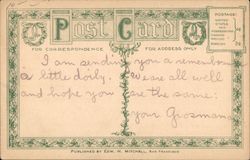 Post Card
FOR CORRESPONDENCE
FOR ADDRESS ONLY
I am sending you a remembrance
a little doily. We are all well
and hope you are the same.
your Grosman
PUBLISHED BY EDW. H. MITCHELL, SAN FRANCISCO